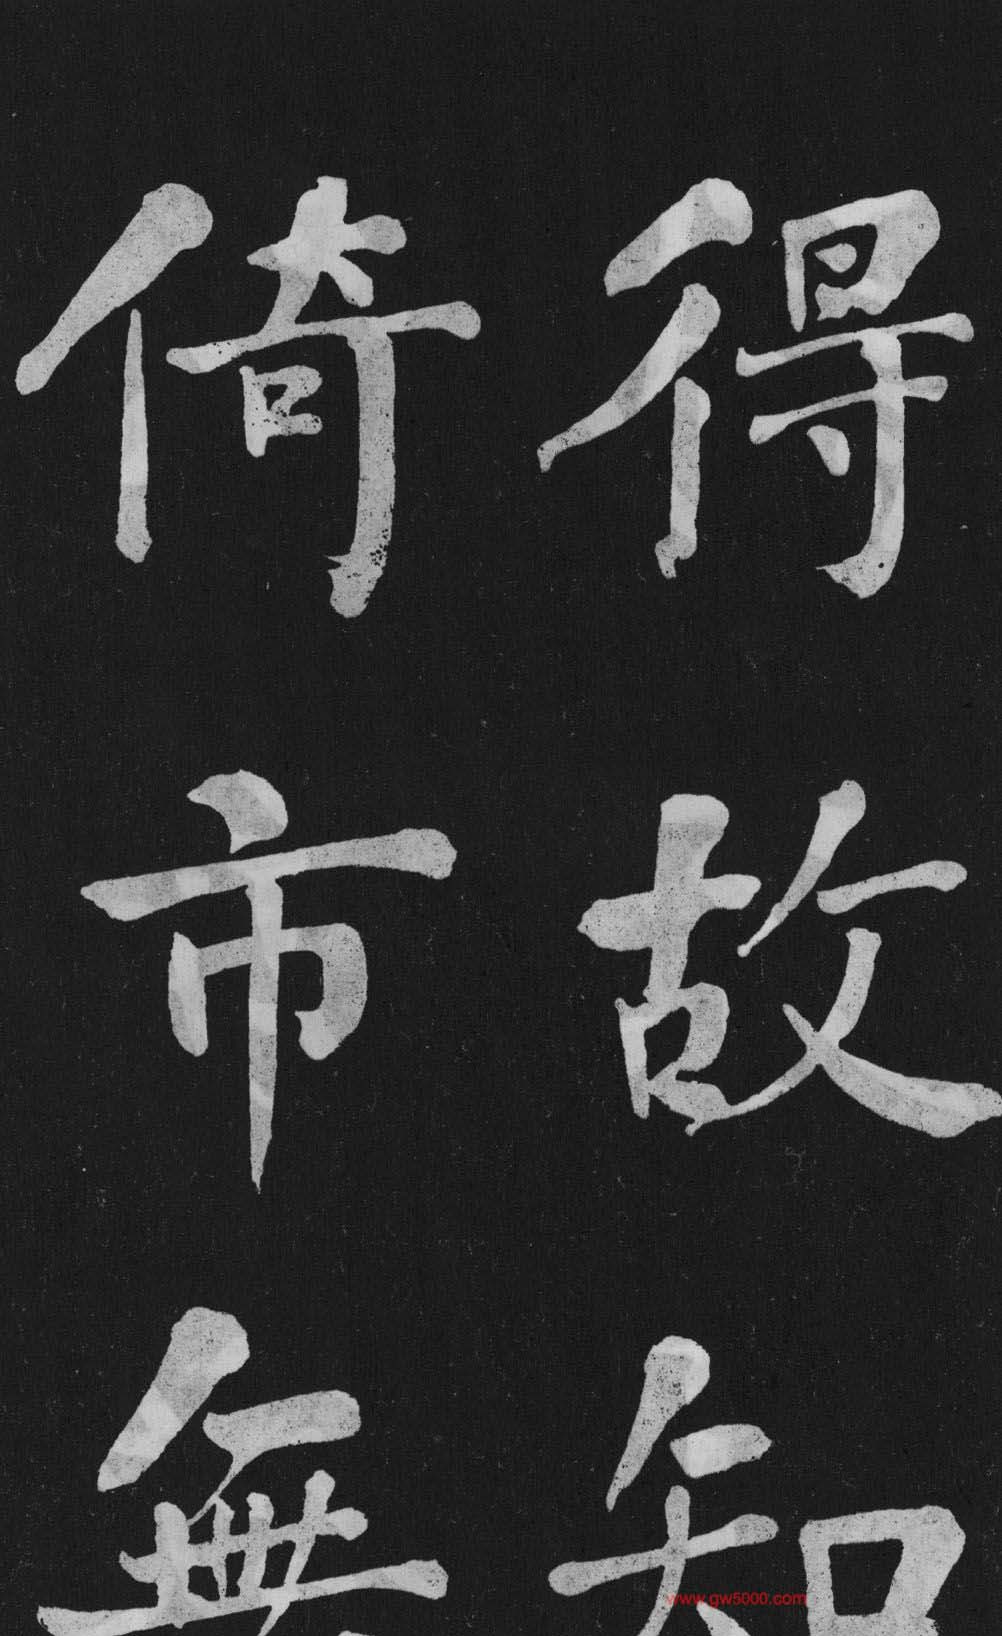 得故知
倚市無
www.gw5000.com